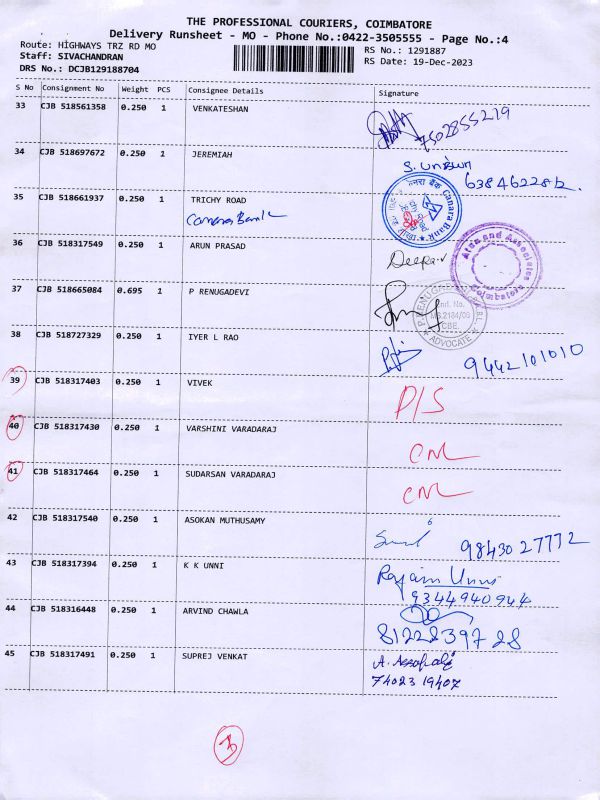 THE PROFESSIONAL COURIERS, COIMBATORE
Delivery Runsheet - MO - Phone No.:0422-3505555 - Page No.:4
Route: HIGHWAYS TRZ RD MO
RS No.: 1291887
Staff: SIVACHANDRAN
RS Date: 19-Dec-2023
DRS No.: DCJB129188704
S No Consignment No Weight PCS Consignee Details Signature
33 CJB 518561358 0.250 1 VENKATESHAN
7502855219
34 CJB 518697672 0.250 1 JEREMIAH
35 CJB 518661937 0.250 1 TRICHY ROAD
Canara Bank
Canara Bank
36 CJB 518317549 0.250 1 ARUN PRASAD
Deepa
and Associates
Coimbatore
37 CJB 518665084 0.695 1 P RENUGADEVI
ADVOCATE
38 CJB 518727329 0.250 1 IYER L RAO
9442101010
39 CJB 518317403 0.250 1 VIVEK D/S
40 CJB 518317430 0.250 1 VARSHINI VARADARAJ CNL
41 CJB 518317464 0.250 1 SUDARSAN VARADARAJ CNL
42 CJB 518317540 0.250 1 ASOKAN MUTHUSAMY
9843027772
43 CJB 518317394 0.250 1 K K UNNI
Unni
9344940944
44 CJB 518316448 0.250 1 ARVIND CHAWLA
8122839728
45 CJB 518317491 0.250 1 SUPREJ VENKAT
74023 19407